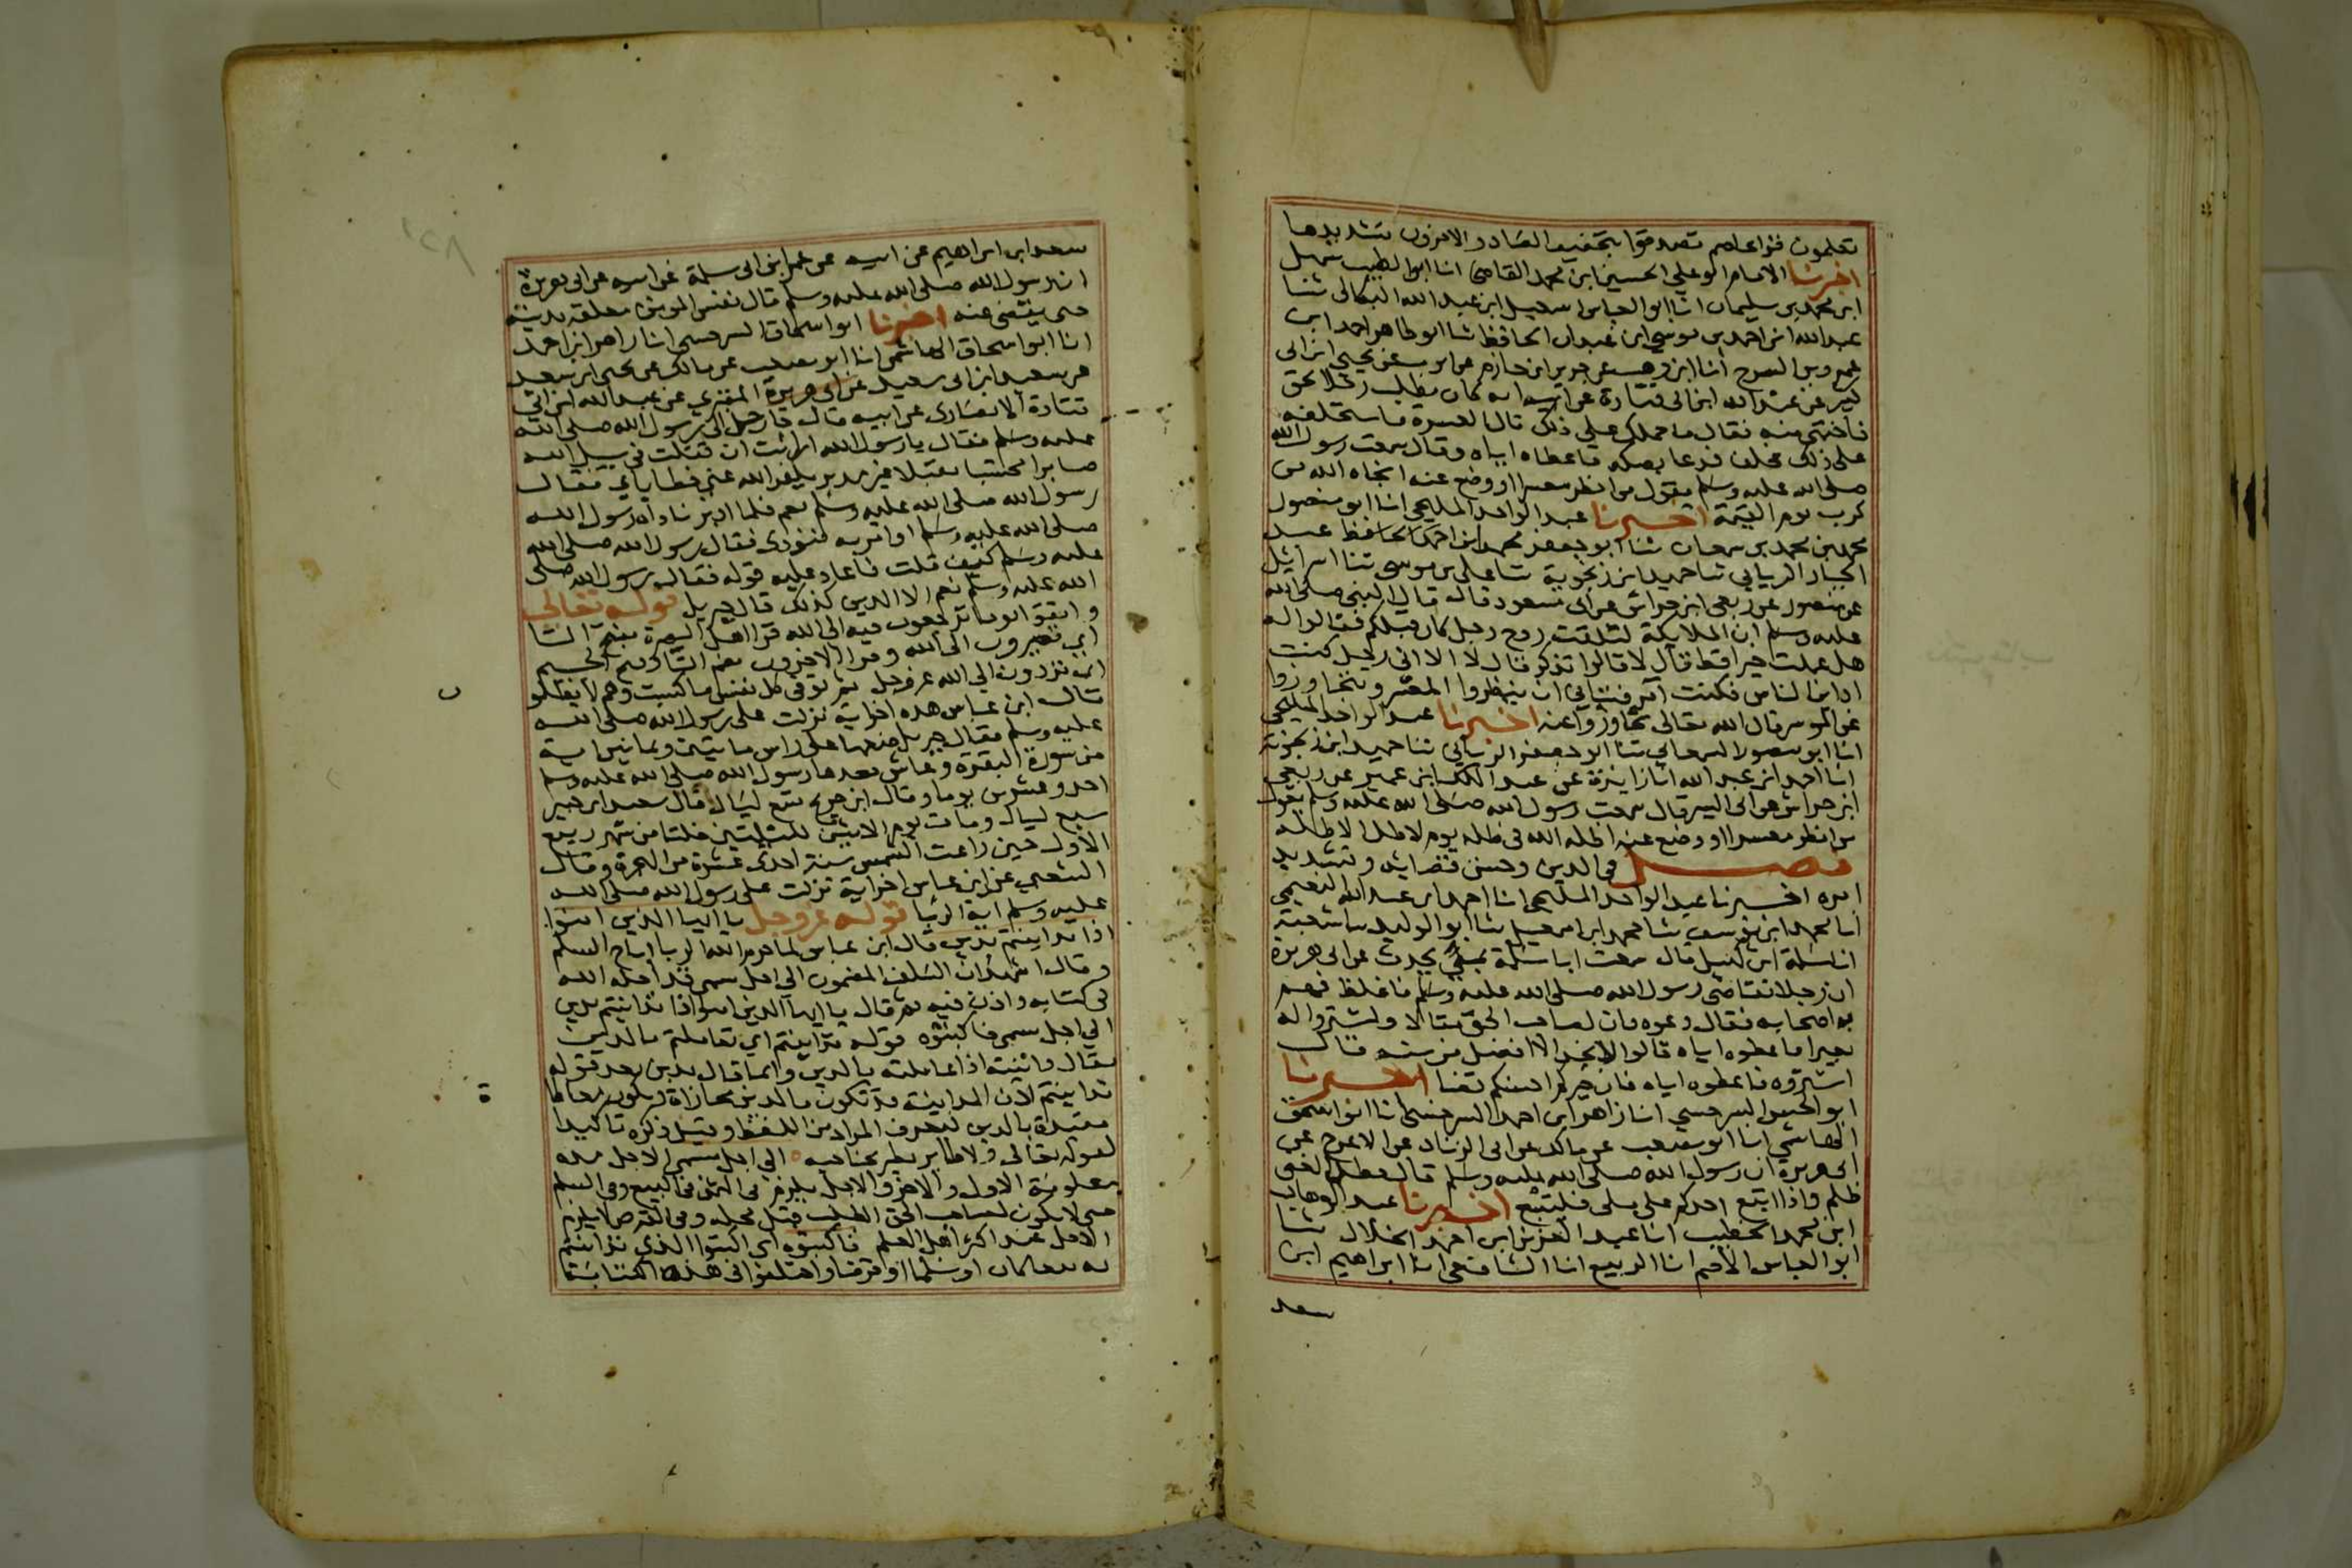 تعلمون قرا عاصم تصدقوا بتخفيف الصاد والاخرون بتشديدها
اخبرنا الامام ابو علي الحسين ابن محمد القاضي انا ابو الطيب سهل
ابن محمد بن سليمان انا ابو العباس اسمعيل ابن عبد الله الميكالي ثنا
عبد الله ابن احمد بن موسى ابن عبدان الحافظ ثنا ابو طاهر احمد ابن
عمرو بن السرح انا ابن وهب عن جرير ابن حازم عن ايوب عن يحيى ابن ابي
كثير عن عبد الله ابن ابي قتادة عن ابيه انه كان يطلب رجلا بحق
فاختبى منه فقال ما حملك على ذلك قال العسرة فاستحلفه
على ذلك فحلف فدعا بصكه فاعطاه اياه وقال سمعت رسول الله
صلى الله عليه وسلم يقول من انظر معسرا او وضع عنه انجاه الله من
كرب يوم القيمة اخبرنا عبد الواحد المليحي انا ابو منصور
محمد بن محمد بن سمعان ثنا ابو جعفر محمد ابن احمد الحافظ عبد
الجبار الرياني ثنا حميد ابن زنجوية ثنا علي بن موسى ثنا اسرائيل
عن منصور عن ربعي ابن حراش عن ابي مسعود قال قال النبي صلى الله
عليه وسلم ان الملايكة لتلقت روح رجل كان قبلكم فقالوا له
هل عملت خيرا قط قال لا قالوا تذكر قال لا الا اني رجل كنت
اداين الناس فكنت آمر فتياني ان ينظروا المعسر ويتجاوزوا
عن الموسر قال الله تعالى تجاوزوا عنه اخبرنا عبد الواحد المليحي
انا ابو منصور السمعاني ثنا ابو جعفر الرياني ثنا حميد ابن زنجوية
انا احمد ابن عبد الله انا زايدة عن عبد الملك ابن عمير عن ربعي
ابن حراش عن ابي اليسر قال سمعت رسول الله صلى الله عليه وسلم يقول
من انظر معسرا او وضع عنه اظله الله في ظله يوم لا ظل الا ظله
فصل في الدين وحسن قضايه وتشديد
امره اخبرنا عبد الواحد المليحي انا احمد ابن عبد الله النعيمي
انا محمد ابن يوسف ثنا محمد ابن اسمعيل ثنا ابو الوليد ثنا شعبة
انا سلمة ابن كهيل قال سمعت ابا سلمة بمنى يحدث عن ابي هريرة
ان رجلا تقاضى رسول الله صلى الله عليه وسلم فاغلظ فهم
به اصحابه فقال دعوه فان لصاحب الحق مقالا واشتروا له
بعيرا فاعطوه اياه قالوا لا نجد الا افضل من سنه قال
اشتروه فاعطوه اياه فان خيركم احسنكم قضا اخبرنا
ابو الحسن السرخسي انا زاهر ابن احمد السرخسي انا ابو اسحق
الهاشمي انا ابو مصعب عن مالك عن ابي الزناد عن الاعرج عن
ابي هريرة ان رسول الله صلى الله عليه وسلم قال مطل الغني
ظلم واذا اتبع احدكم على ملى فليتبع اخبرنا عبد الوهاب
ابن محمد الخطيب انا عبد العزيز ابن احمد الخلال ثنا
ابو العباس الاصم انا الربيع انا الشافعي انا ابراهيم ابن
سعد
سعد ابن ابراهيم عن ابيه عن عمر ابن ابي سلمة عن ابيه عن ابي هريرة
ان رسول الله صلى الله عليه وسلم قال نفس المومن معلقة بدينه
حتى يقضى عنه اخبرنا ابو اسحاق السرخسي انا زاهر ابن احمد
انا ابو اسحاق الهاشمي انا ابو مصعب عن مالك عن يحيى ابن سعيد
عن سعيد ابن ابي سعيد عن ابي هريرة المقبري عن عبد الله ابن ابي
قتادة الانصاري عن ابيه قال جا رجل الى رسول الله صلى الله
عليه وسلم فقال يا رسول الله ارايت ان قتلت في سبيل الله
صابرا محتسبا مقبلا غير مدبر يكفر الله عني خطاياي فقال
رسول الله صلى الله عليه وسلم نعم فلما ادبر ناداه رسول الله
صلى الله عليه وسلم او امر به فنودي فقال رسول الله صلى الله
عليه وسلم كيف قلت فاعاد عليه قوله فقال رسول الله صلى
الله عليه وسلم نعم الا الدين كذلك قال جبريل قوله تعالى
واتقوا يوما ترجعون فيه الى الله قرا اهل البصرة بفتح التا
اي تصيرون الى الله وقرا الاخرون بضم التا وفتح الجيم
اي تردون الى الله عز وجل ثم توفى كل نفس ما كسبت وهم لا يظلمو
ن
قال ابن عباس هذه اخر اية نزلت على رسول الله صلى الله
عليه وسلم فقال جبريل ضعها على راس مايتين وثمانين اية
من سورة البقرة وعاش بعدها رسول الله صلى الله عليه وسلم
احد وعشرين يوما وقال ابن جريج تسع ليال وقال سعيد ابن جبير
سبع ليال ومات يوم الاثنين لليلتين خلتا من شهر ربيع
الاول حين زاغت الشمس سنة احدى عشرة من الهجرة وقال
الشعبي عن ابن عباس اخر اية نزلت على رسول الله صلى الله
عليه وسلم اية الربا قوله عز وجل يا ايها الذين امنوا
اذا تداينتم بدين قال ابن عباس لما حرم الله الربا اباح السلم
وقال اشهد ان السلف المضمون الى اجل مسمى قد احله الله
في كتابه واذن فيه ثم قال يا ايها الذين امنوا اذا تداينتم بدين
الى اجل مسمى فاكتبوه قوله تداينتم اي تعاملتم بالدين
يقال داينته اذا عاملته بالدين وانما قال بدين بعد قوله
تداينتم لان المداينة قد تكون بالدين مجازاة وتكون معاطا
ة
مقيدة بالدين ليعرف المراد من اللفظ وقيل ذكره تاكيدا
لقوله تعالى ولا طاير يطير بجناحيه الى اجل مسمى الاجل مدة
معلومة الاول والاخر والاجل يلزم في الثمن في البيع وفي السلم
حتى لا يكون لصاحب الحق الطلب قبل محله وفي القرض لا يلزم
الاجل عند اكثر اهل العلم فاكتبوه اي اكتبوا الذي تداينتم
به بيعا كان او سلما او قرضا واختلفوا في هذه الكتابة